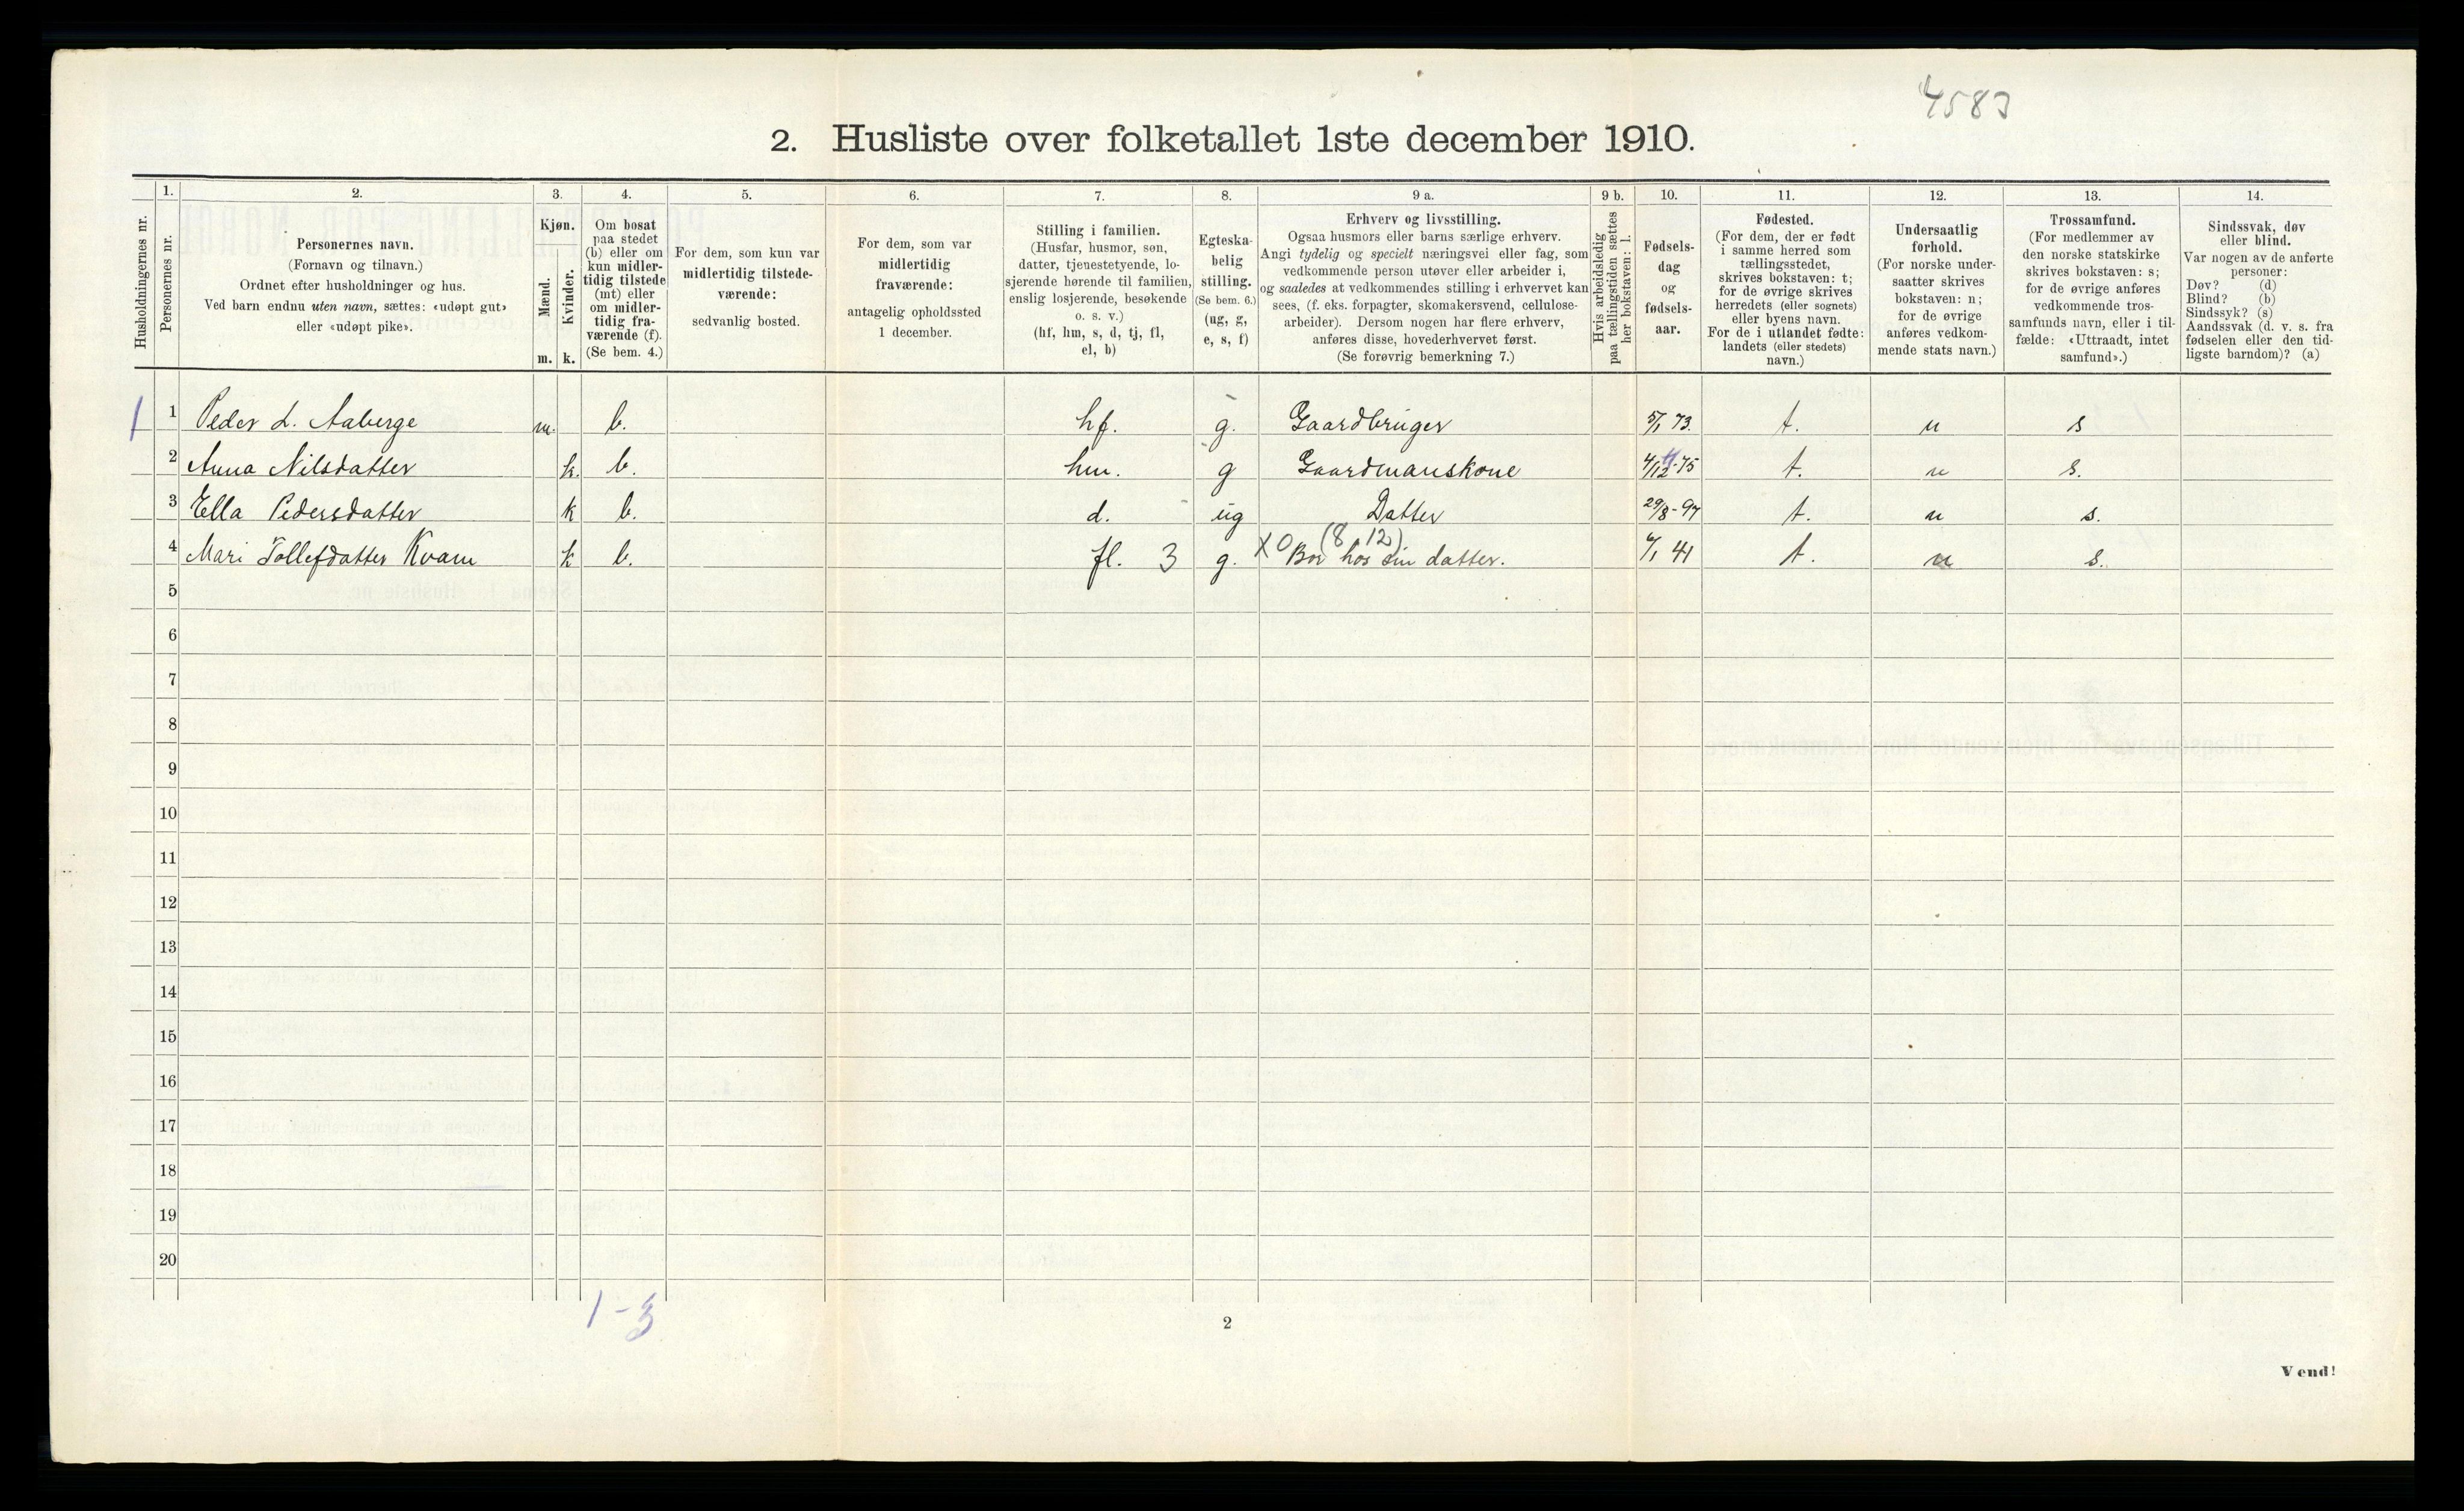 4583
2. Husliste over folketallet 1ste december 1910.
Husholdningernes nr.
1.
Personernes nr.
2.
Personernes navn.
(Fornavn og tilnavn.)
Ordnet efter husholdninger og hus.
Ved barn endnu uten navn, sættes: «udøpt gut»
eller «udøpt pike».
3.
Kjøn.
Mænd.
Kvinder.
m. k.
4.
Om bosat
paa stedet
(b) eller om
kun midler-
tidig tilstede
(mt) eller
om midler-
tidig fra-
værende (f).
(Se bem. 4.)
5.
For dem, som kun var
midlertidig tilstede-
værende:
sedvanlig bosted.
6.
For dem, som var
midlertidig
fraværende:
antagelig opholdssted
1 december.
7.
Stilling i familien.
(Husfar, husmor, søn,
datter, tjenestetyende, lo-
sjerende hørende til familien,
enslig losjerende, besøkende
o. s. v.)
(hf, hm, s, d, tj, fl,
el, b)
8.
Egteska-
belig
stilling.
(Se bem. 6.)
(ug, g,
e, s, f)
9 a.
Erhverv og livsstilling.
Ogsaa husmors eller barns særlige erhverv.
Angi tydelig og specielt næringsvei eller fag, som
vedkommende person utøver eller arbeider i,
og saaledes at vedkommendes stilling i erhvervet kan
sees, (f. eks. forpagter, skomakersvend, cellulose-
arbeider). Dersom nogen har flere erhverv,
anføres disse, hovederhvervet først.
(Se forøvrig bemerkning 7.)
9 b.
Hvis arbeidsledig
paa tællingstiden sættes
her bokstaven: l.
10.
Fødsels-
dag
og
fødsels-
aar.
11.
Fødested.
(For dem, der er født
i samme herred som
tællingsstedet,
skrives bokstaven: t;
for de øvrige skrives
herredets (eller sognets)
eller byens navn.
For de i utlandet fødte:
landets (eller stedets)
navn.)
12.
Undersaatlig
forhold.
(For norske under-
saatter skrives
bokstaven: n;
for de øvrige
anføres vedkom-
mende stats navn.)
13.
Trossamfund.
(For medlemmer av
den norske statskirke
skrives bokstaven: s;
for de øvrige anføres
vedkommende tros-
samfunds navn, eller i til-
fælde: «Uttraadt, intet
samfund».)
14.
Sindssvak, døv
eller blind.
Var nogen av de anførte
personer:
Døv? (d)
Blind? (b)
Sindssyk? (s)
Aandssvak (d. v. s. fra
fødselen eller den tid-
ligste barndom)? (a)
1 1 Peder L. Aaberge m. b. hf. g. Gaardbruger 5/1 73. t. n s
2 Anna Nilsdatter k. b. hm. g Gaardmanskone 4/12-75 t. n s.
3 Ella Pedersdatter k b. d. ug Datter 29/8-97 t. n s.
4 Mari Tollefdatter Kvam k b. fl. 3 g. X0 (8, 12) Bor hos sin datter. 6/1 41 t. n s.
5
6
7
8
9
10
11
12
13
14
15
16
17
18
19
20
1-3
2
Vend!